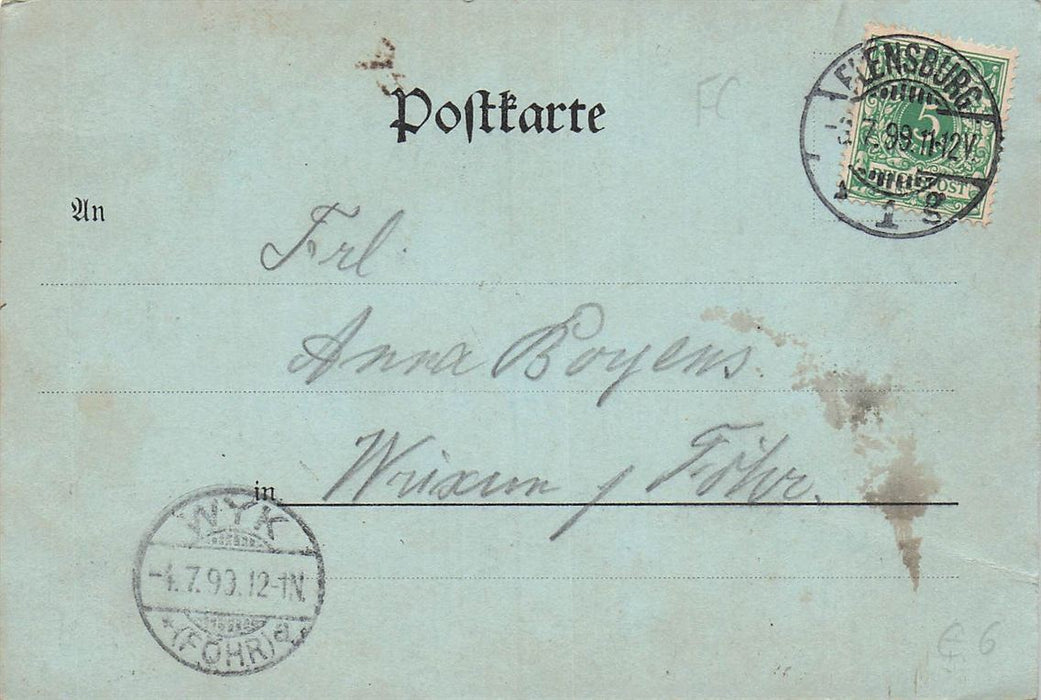 Postkarte
FC
FLENSBURG
7.99.11-12V.
5
POST
1 g
An
Frl.
Anna Boyens.
in Wrixum / Föhr.
WYK
-4.7.99.12-1N.
*(FÖHR)a
€ 6